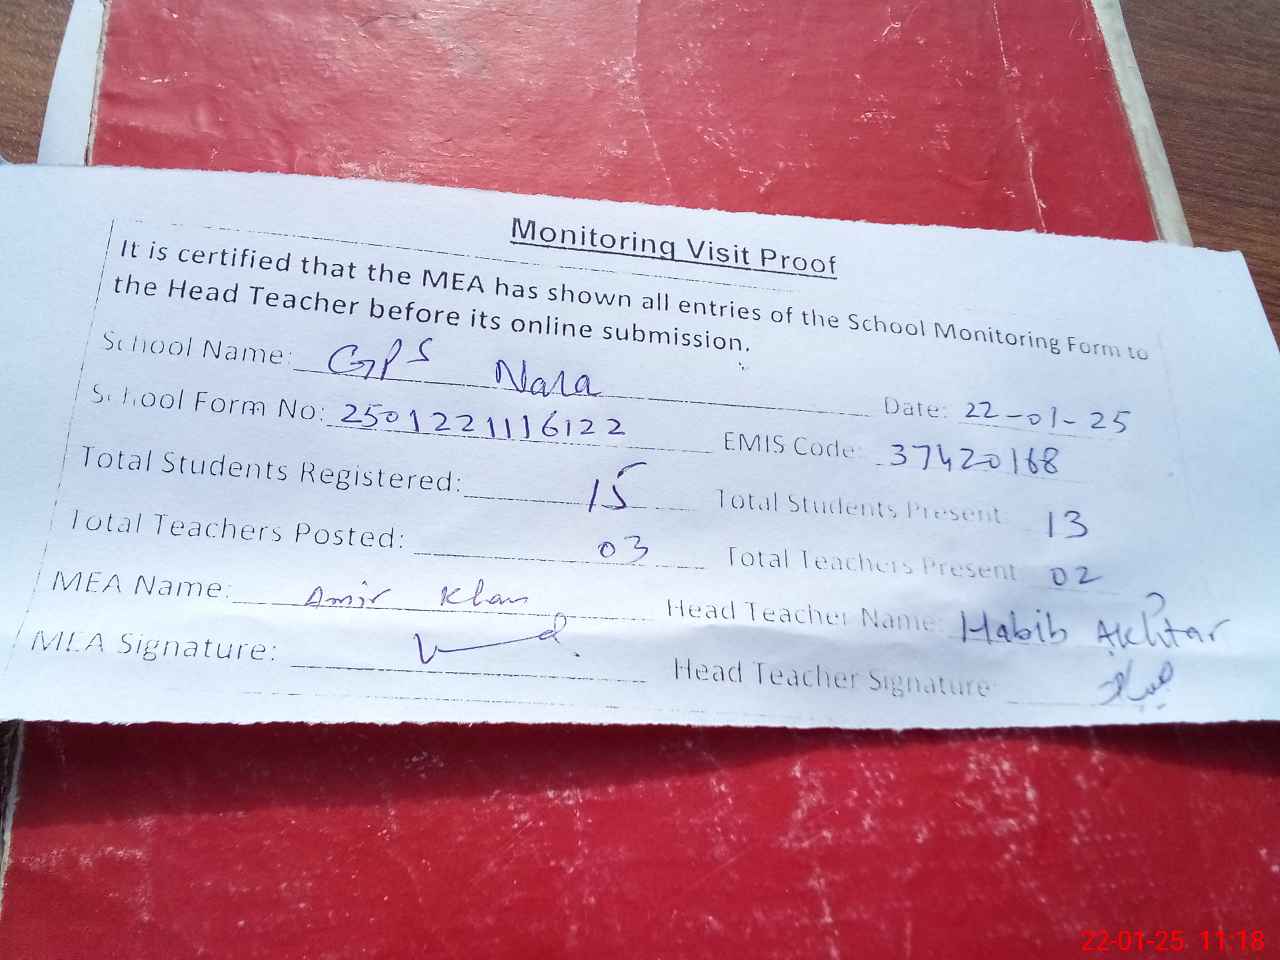 Monitoring Visit Proof
It is certified that the MEA has shown all entries of the School Monitoring Form to
the Head Teacher before its online submission.
School Name: GPS Nara Date: 22-01-25
School Form No: 2501221116122 EMIS Code: 37420168
Total Students Registered: 15 Total Students Present 13
Total Teachers Posted: 03 Total Teachers Present 02
MEA Name: Amir Khan Head Teacher Name: Habib Akhtar
MEA Signature: Head Teacher Signature
22-01-25 11:18